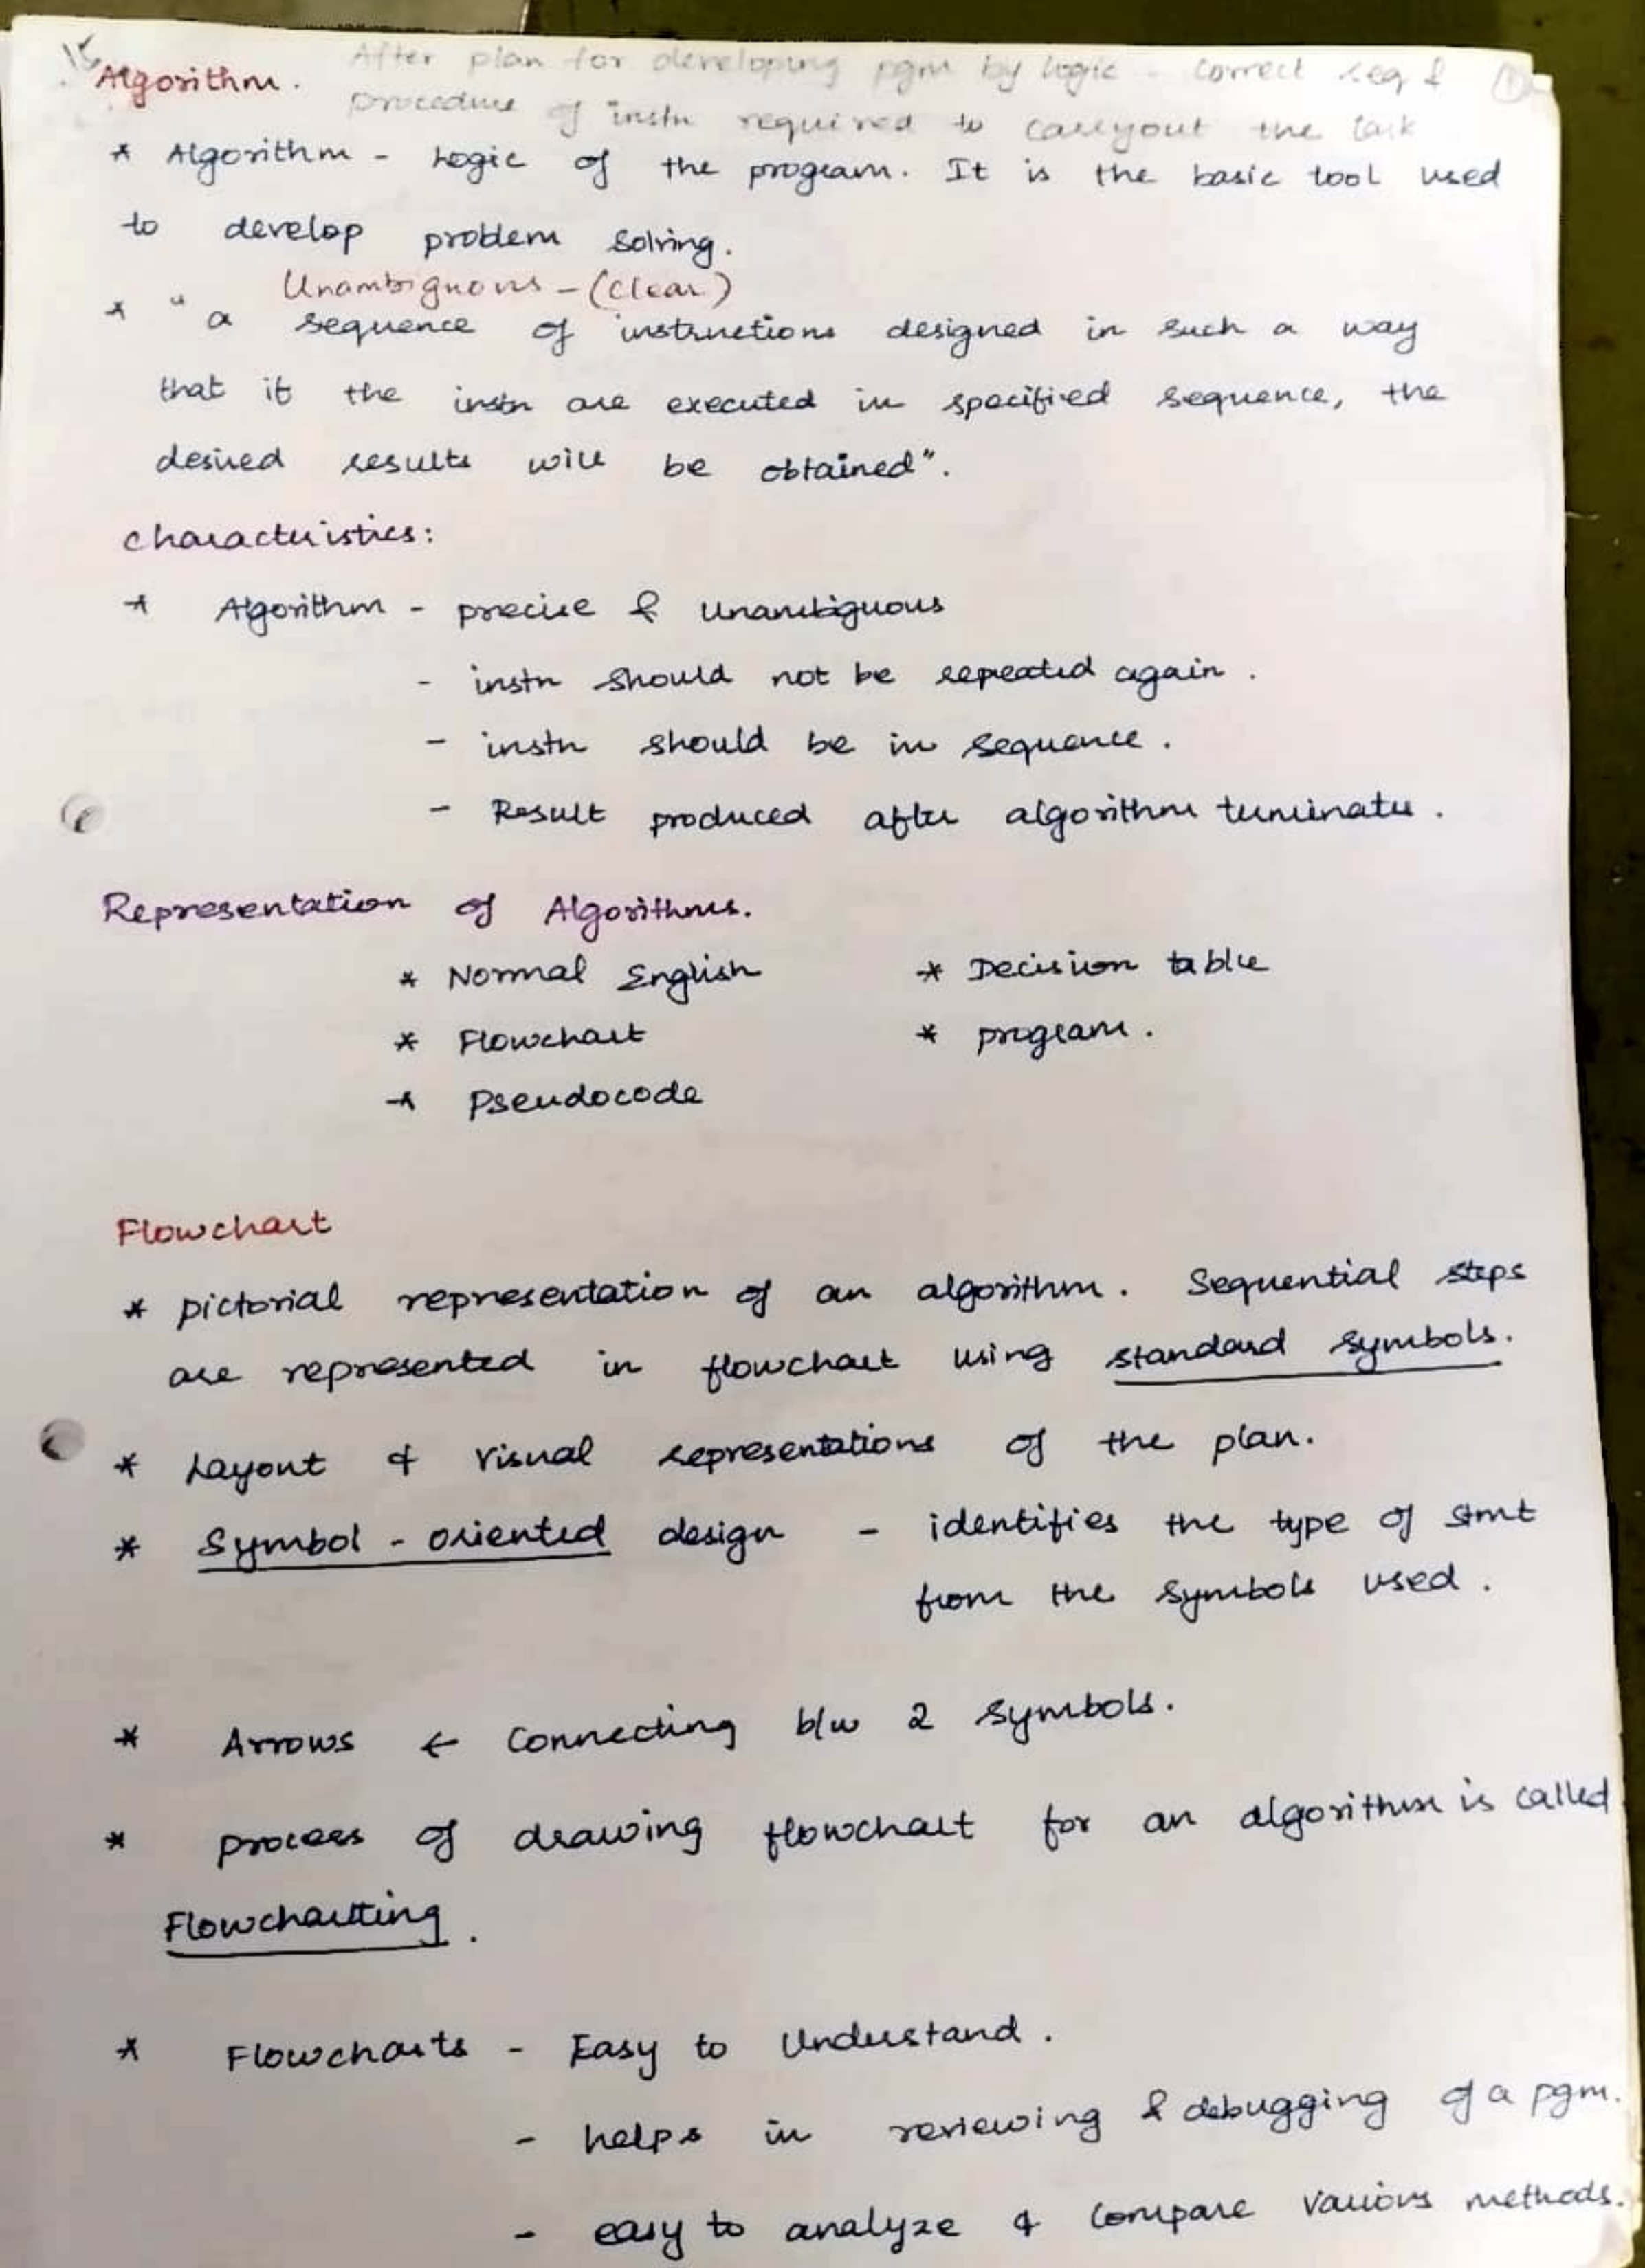 15
Algorithm.
After plan for developing pgm by logic - correct seq &
procedure of instn required to carryout the task
* Algorithm - Logic of the program. It is the basic tool used
to develop problem solving.
Unambiguous - (Clear)
* "a sequence of instructions designed in such a way
that if the instn are executed in specified sequence, the
desired results will be obtained".
characteristics:
* Algorithm - precise & unambiguous
- instn should not be repeated again.
- instn should be in sequence.
- Result produced after algorithm terminates.
Representation of Algorithms.
* Normal English * Decision table
* Flowchart * program.
* Pseudocode
Flowchart
* pictorial representation of an algorithm. Sequential steps
are represented in flowchart using standard symbols.
* Layout & Visual representations of the plan.
* Symbol - oriented design - identifies the type of stmt
from the symbols used.
* Arrows ← Connecting b/w 2 symbols.
* process of drawing flowchart for an algorithm is called
Flowcharting.
* Flowcharts - Easy to Understand.
- helps in reviewing & debugging of a pgm.
- easy to analyze & compare various methods.